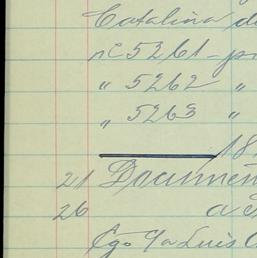 Catalina de
nº 5261 - pr
" 5262 "
" 5263 "
18
21 Documen
26 a S
Cgo 9a Luis C